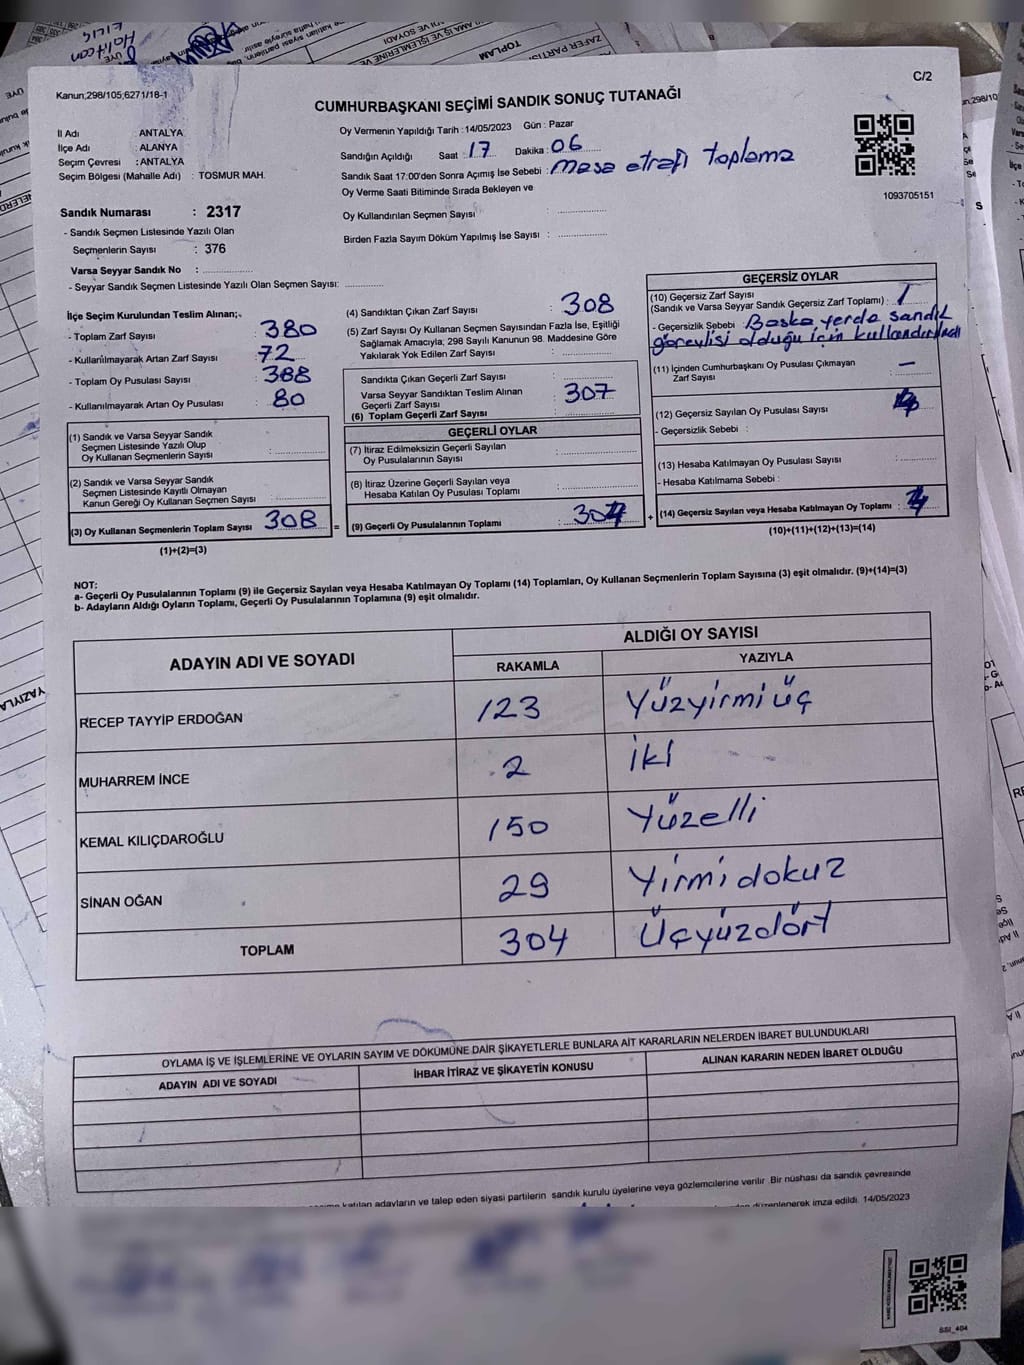 C/2
Kanun;298/105;6271/18-1
CUMHURBAŞKANI SEÇİMİ SANDIK SONUÇ TUTANAĞI
İl Adı : ANTALYA
İlçe Adı : ALANYA
Seçim Çevresi : ANTALYA
Seçim Bölgesi (Mahalle Adı) : TOSMUR MAH.
Oy Vermenin Yapıldığı Tarih :14/05/2023 Gün : Pazar
Sandığın Açıldığı Saat : 17 Dakika : 06
Sandık Saat 17:00'den Sonra Açımış İse Sebebi : Masa etrafı toplama
Oy Verme Saati Bitiminde Sırada Bekleyen ve
Oy Kullandırılan Seçmen Sayısı :
Birden Fazla Sayım Döküm Yapılmış İse Sayısı :
1093705151
Sandık Numarası : 2317
- Sandık Seçmen Listesinde Yazılı Olan
Seçmenlerin Sayısı : 376
Varsa Seyyar Sandık No :
- Seyyar Sandık Seçmen Listesinde Yazılı Olan Seçmen Sayısı:
İlçe Seçim Kurulundan Teslim Alınan;
- Toplam Zarf Sayısı : 380
- Kullanılmayarak Artan Zarf Sayısı : 72
- Toplam Oy Pusulası Sayısı : 388
- Kullanılmayarak Artan Oy Pusulası : 80
(1) Sandık ve Varsa Seyyar Sandık
Seçmen Listesinde Yazılı Olup
Oy Kullanan Seçmenlerin Sayısı :
(2) Sandık ve Varsa Seyyar Sandık
Seçmen Listesinde Kayıtlı Olmayan
Kanun Gereği Oy Kullanan Seçmen Sayısı :
(3) Oy Kullanan Seçmenlerin Toplam Sayısı 308 =
(1)+(2)=(3)
(4) Sandıktan Çıkan Zarf Sayısı : 308
(5) Zarf Sayısı Oy Kullanan Seçmen Sayısından Fazla İse, Eşitliği
Sağlamak Amacıyla; 298 Sayılı Kanunun 98. Maddesine Göre
Yakılarak Yok Edilen Zarf Sayısı :
Sandıkta Çıkan Geçerli Zarf Sayısı :
Varsa Seyyar Sandıktan Teslim Alınan
Geçerli Zarf Sayısı : 307
(6) Toplam Geçerli Zarf Sayısı :
GEÇERLİ OYLAR
(7) İtiraz Edilmeksizin Geçerli Sayılan
Oy Pusulalarının Sayısı :
(8) İtiraz Üzerine Geçerli Sayılan veya
Hesaba Katılan Oy Pusulası Toplamı :
(9) Geçerli Oy Pusulalarının Toplamı : 304 +
GEÇERSİZ OYLAR
(10) Geçersiz Zarf Sayısı
(Sandık ve Varsa Seyyar Sandık Geçersiz Zarf Toplamı) : 1
- Geçersizlik Sebebi : Başka yerde sandık
görevlisi olduğu için kullandırılmadı
(11) İçinden Cumhurbaşkanı Oy Pusulası Çıkmayan
Zarf Sayısı : —
(12) Geçersiz Sayılan Oy Pusulası Sayısı :
- Geçersizlik Sebebi :
(13) Hesaba Katılmayan Oy Pusulası Sayısı :
- Hesaba Katılmama Sebebi :
(14) Geçersiz Sayılan veya Hesaba Katılmayan Oy Toplamı :
(10)+(11)+(12)+(13)=(14)
NOT:
a- Geçerli Oy Pusulalarının Toplamı (9) ile Geçersiz Sayılan veya Hesaba Katılmayan Oy Toplamı (14) Toplamları, Oy Kullanan Seçmenlerin Toplam Sayısına (3) eşit olmalıdır. (9)+(14)=(3)
b- Adayların Aldığı Oyların Toplamı, Geçerli Oy Pusulalarının Toplamına (9) eşit olmalıdır.
ADAYIN ADI VE SOYADI
ALDIĞI OY SAYISI
RAKAMLA YAZIYLA
RECEP TAYYİP ERDOĞAN 123 Yüzyirmi üç
MUHARREM İNCE 2 iki
KEMAL KILIÇDAROĞLU 150 Yüzelli
SİNAN OĞAN 29 Yirmi dokuz
TOPLAM 304 Üçyüzdört
OYLAMA İŞ VE İŞLEMLERİNE VE OYLARIN SAYIM VE DÖKÜMÜNE DAİR ŞİKAYETLERLE BUNLARA AİT KARARLARIN NELERDEN İBARET BULUNDUKLARI
ADAYIN ADI VE SOYADI
İHBAR İTİRAZ VE ŞİKAYETİN KONUSU
ALINAN KARARIN NEDEN İBARET OLDUĞU
katılan adayların ve talep eden siyasi partilerin sandık kurulu üyelerine veya gözlemcilerine verilir. Bir nüshası da sandık çevresinde
düzenlenerek imza edildi. 14/05/2023